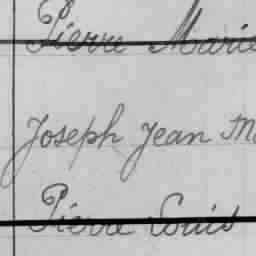 Pierre Marie
Joseph Jean M
Pierre Louis